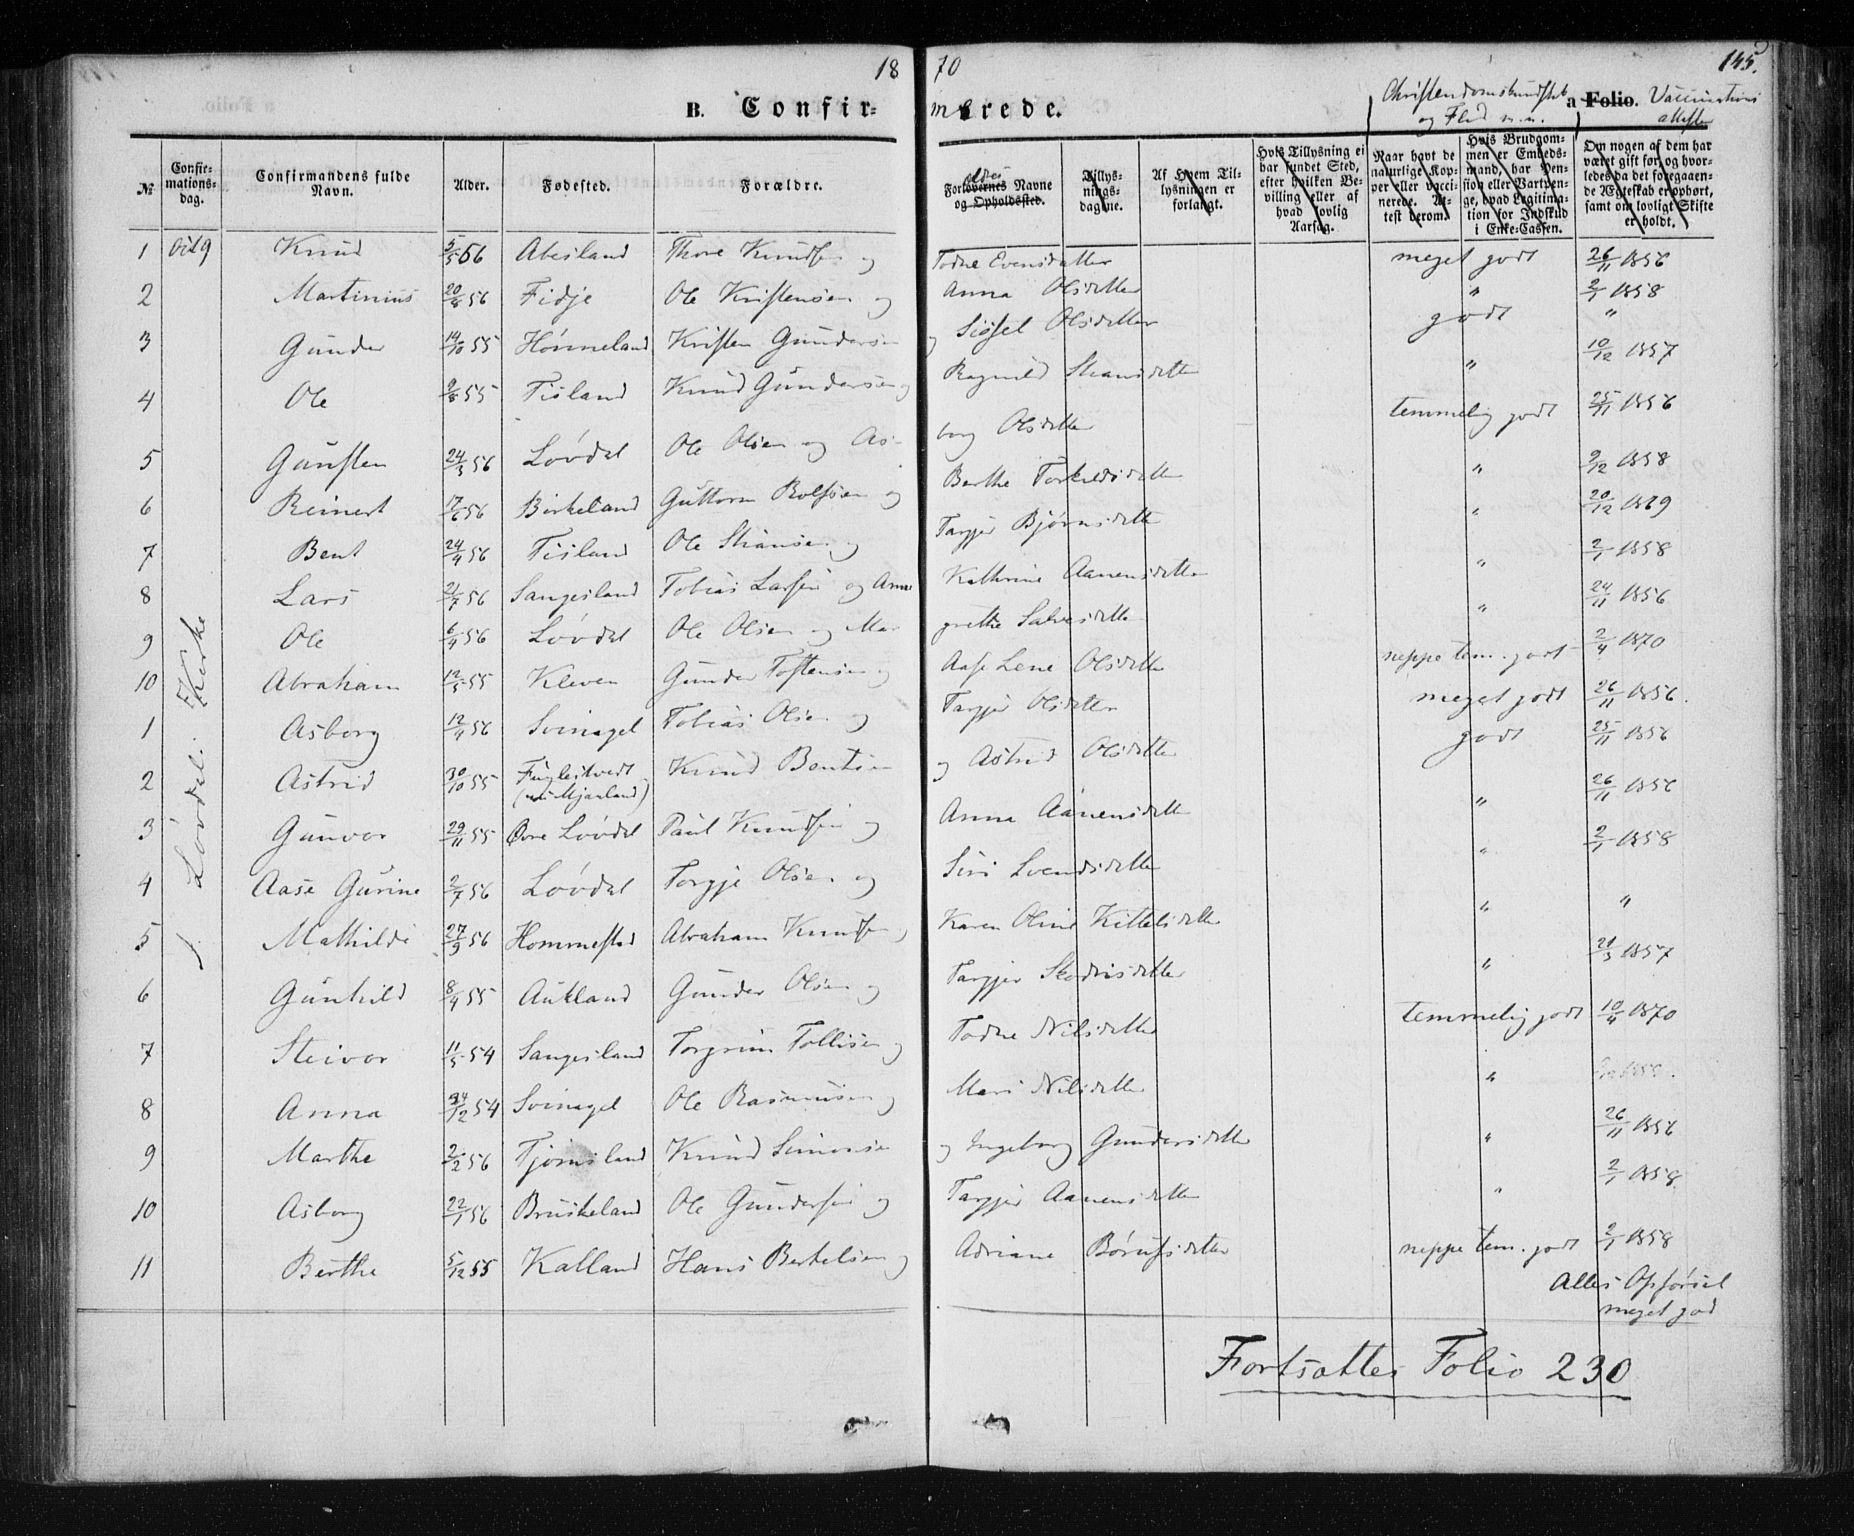 18 70 145.
B. Confir- merede. Christendomskundskab og Flid m.m. a Folio. Vaccinations attester
№ Confir-mations-dag. Confirmandens fulde Navn. Alder. Fødested. Forældre. Forlovernes Navne og Opholdssted. Tillys-nings-dagene. Af Hvem Til-lysningen er forlangt. Hvis Tillysning ei har fundet Sted, efter hvilken Be-villing eller af hvad lovlig Aarsag. Naar havt de naturlige Kop-per eller vacci-nerede. At-test derom. Hvis Brudgom-men er Embeds-mand, har Pen-sion eller Vartpen-ge, hvad Legitima-tion for Indskud i Enke-Cassen. Om nogen af dem har været gift før, og hvor-ledes da det foregaaen-de Ægteskab er ophørt, samt om lovligt Skifte er holdt.
1 Knud 5/5 56 Abesland Thore Knudsen og Todne Evensdatter meget godt 26/11 1856
2 Martinius 20/8 56 Fidje Ole Kristensen og Anna Olsdatter " 2/1 1858
3 Gunder 14/10 55 Hønneland Kristen Gundersen og Sissel Olsdatter godt "
4 Ole 2/8 55 Tisland Knud Gundersen og Ragnild Stiansdatter " 10/12 1857
5 Gunsten 24/3 56 Løvdal Ole Olsen og As- borg Olsdatter temmelig godt 25/11 1856
6 Reinert 17/6 56 Birkeland Guttorm Rolfsen og Berthe Torkelsdatter " 2/12 1858
7 Bent 24/4 56 Tisland Ole Stiansen og Targjer Bjørnsdatter " 20/12 1869
8 Lars 2/7 56 Sangesland Tobias Larsen og Anne Kathrine Aanensdatter " 2/1 1858
9 Ole 6/4 56 Løvdal Ole Olsen og Mar grethe Salvesdatter " 24/11 1856
10 Abraham 12/5 55 Kleven Gunder Tostensen og Aase Lene Olsdatter neppe tem. godt 2/4 1870
1 Asborg 12/4 56 Svinagel Tobias Olsen og Targjer Olsdatter meget godt 26/11 1856.
2 Astrid 30/10 55 Fuglestvedt Knud Bentsen og Astrid Olsdatter godt 25/11 1856
Mjaaland)
3 Gunvor 29/11 55 Øvre Løvdal Paul Knudsen og Anna Aanensdatter " 26/11 1856
4 Aase Gurine 2/7 56 Løvdal Torgje Olsen og Siri Svendsdatter " 2/1 1858
5 Mathilde 27/9 56 Hommestad Abraham Knudsen og Karen Oline Kittelsdatter " "
6 Gunhild 8/4 55 Aukland Gunder Olsen og Targjer " 21/3 1857
7 Steivor 11/5 54 Sangesland Torgrim Tollisen og Todne Nilsdatter temmelig godt 10/4 1870
8 Anna 24/12 54 Svinagel Ole Rasmussen og Mari Nilsdatter "
9 Marthe 2/2 56 Tjømsland Knud Simonsen og Ingeborg Gundersdatter " 26/11 1856
10 Asborg 22/1 56 Bruskeland Ole Gundersen og Targjer Aanensdatter " 2/1 1858
11 Berthe 5/12 55 Kalland Hans Berthelsen og Adriane Børufsdatter neppe tem. godt 2/1 1858
i Løvdals Kirke
Alles Opførsel
meget god
Fortsættes Folio 230